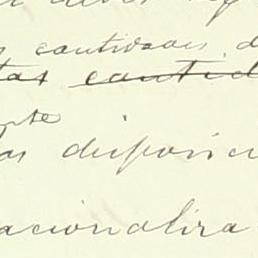 cantidades, d
tas ~~cantid~~
nte
as disposici
acionaliza